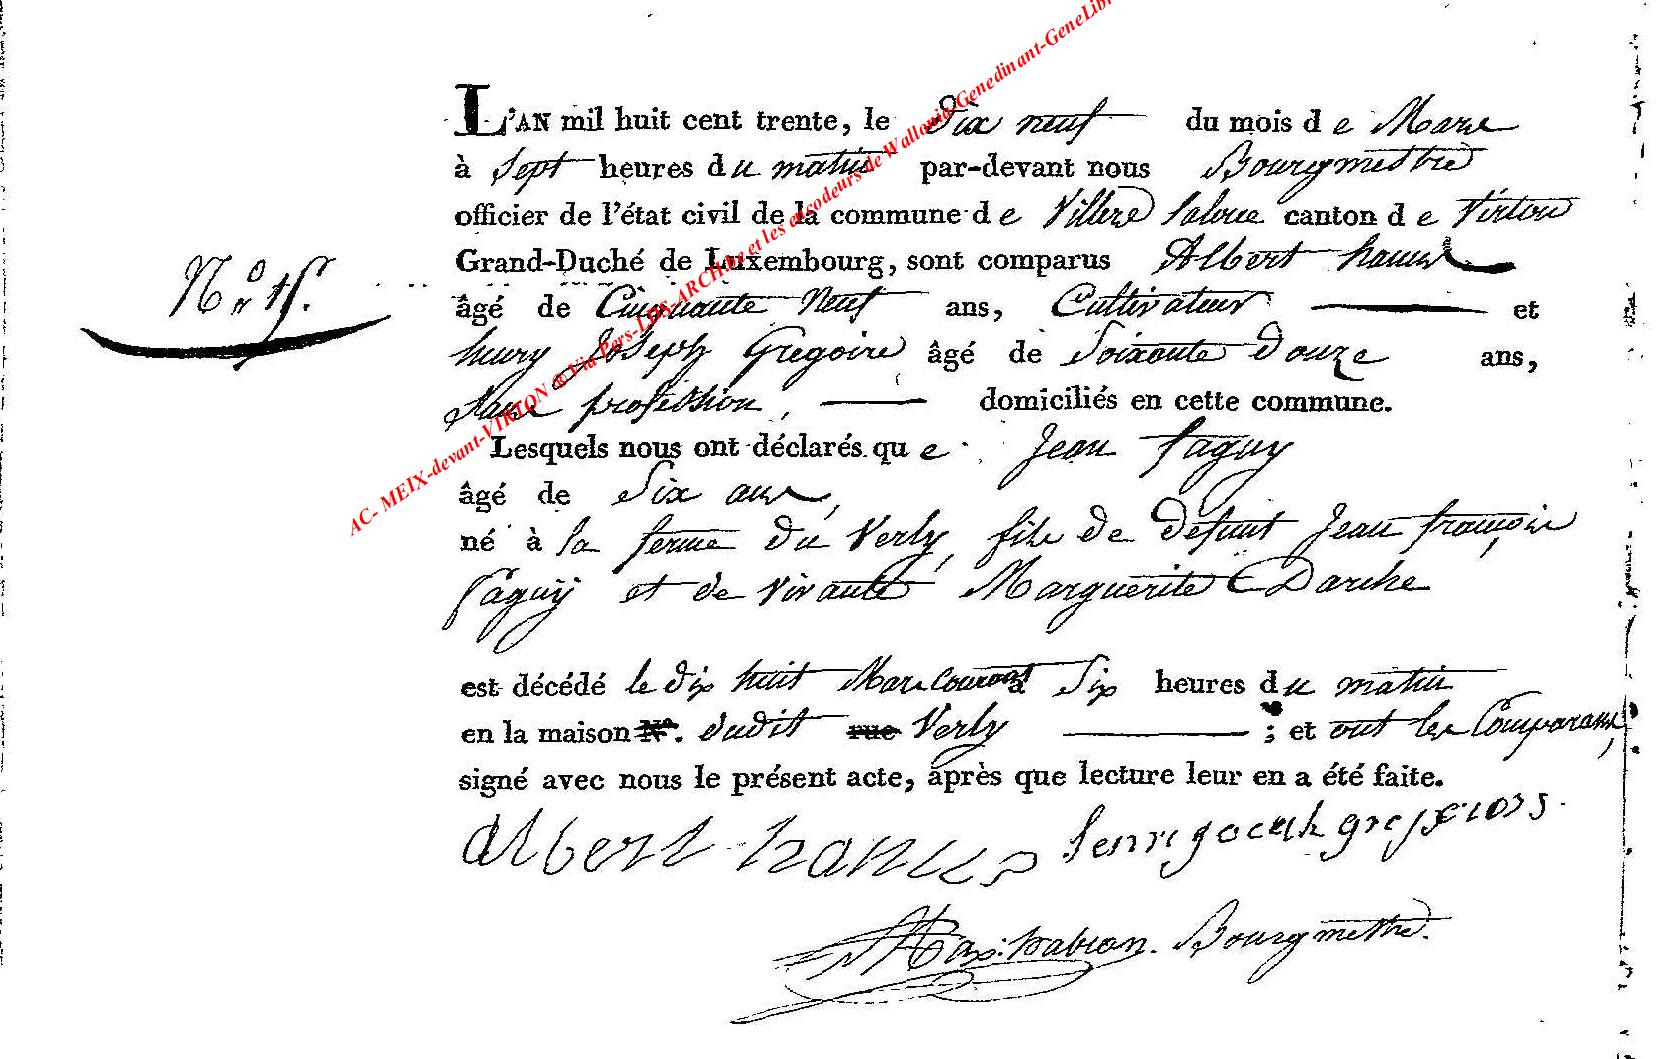 L'AN mil huit cent trente, le Dix neuf du mois d e Mars
à Sept heures du matin par-devant nous Bourgmestre
officier de l'état civil de la commune d e Villers Laloue canton d e Virton
Grand-Duché de Luxembourg, sont comparus Albert
N° 15.
âgé de Cinquante Neuf ans, Cultivateur et
henry Joseph Gregoire âgé de Soixante Douze ans,
Sans profession, domiciliés en cette commune.
Lesquels nous ont déclarés que Jean faguy
âgé de Six ans,
né à la ferme du Verly, fils de defunt Jean françois
faguy et de vivante Marguerite Darche
est décédé le dix huit Mars Courant à Six heures du matin
en la maison N°. dudit rue Verly ; et ont les Comparans,
signé avec nous le présent acte, après que lecture leur en a été faite.
albert
Bourgmestre.
AC- MEIX-devant-VIRTON & Via Pers-LDS-ARCH.be et les encodeurs de Wallonia-Genedinant-GeneLibr